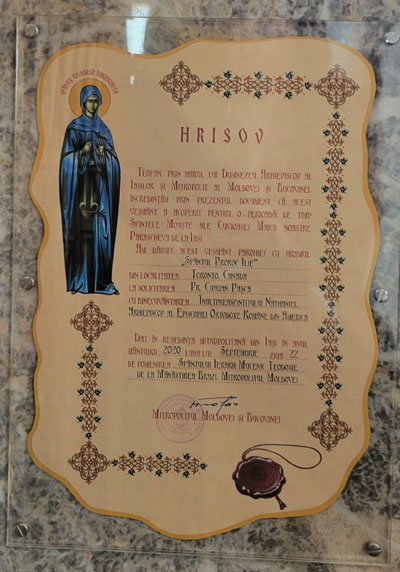 HRISOV
Teofan prin harul lui Dumnezeu Arhiepiscop al
Iașilor și Mitropolit al Moldovei și Bucovinei
încredințăm prin prezentul document că acest
veșmânt a acoperit pentru o perioadă de timp
Sfintele Moaște ale Cuvioasei Maicii noastre
Parascheva de la Iași.
Am dăruit acest veșmânt parohiei cu hramul
"Sfântul Proroc Ilie"
din localitatea Toronto, Canada
la solicitarea Pr. Ciprian Pașca
cu binecuvântarea Înaltpreasfințitului Nathaniel,
Arhiepiscop al Episcopiei Ortodoxe Române din America
Dat în reședința mitropolitană din Iași în anul
mântuirii 2020 luna lui Septembrie ziua 22
de pomenirea Sfântului Ierarh Mucenic Teodosie
de la Mânăstirea Brazi, Mitropolitul Moldovei
Mitropolitul Moldovei și Bucovinei